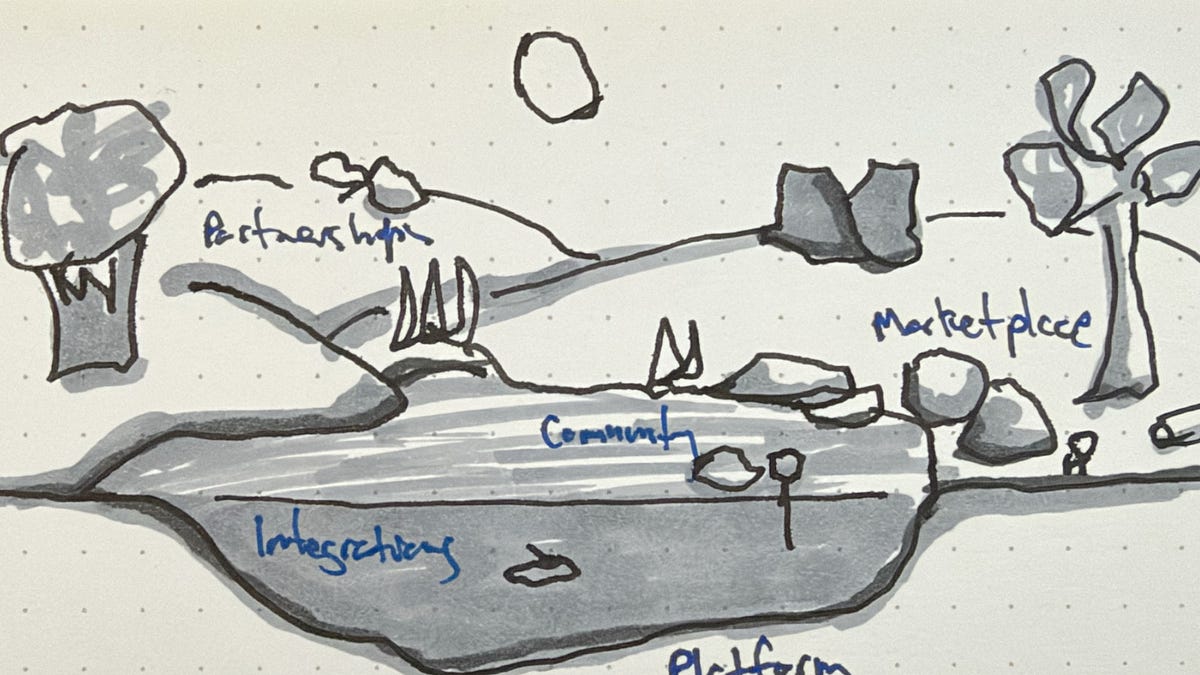 Partnerships
Marketplace
Community
Integrations
Platform